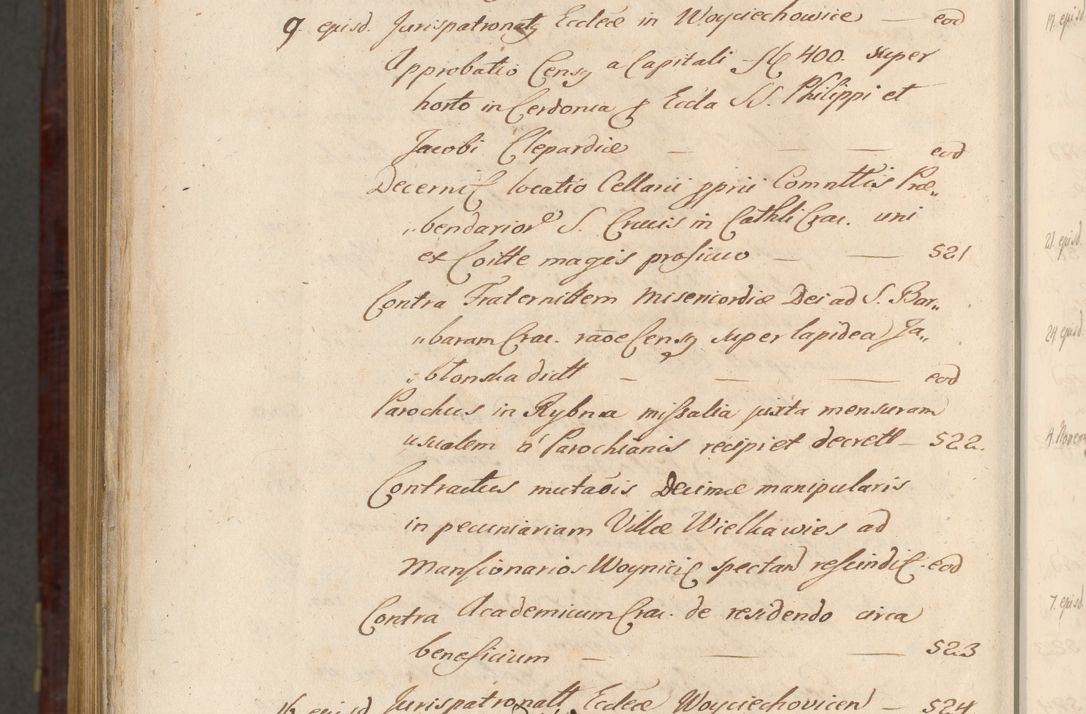 9. episd. Jurispatronatq Eccleæ in Woyciechowice — eod
Approbatio Censq a Capitali fl 400. super
horto in Cerdonia Eccla SS. Philippi et
Jacobi Clepardiæ — — — eod
Decernit locatio Cellarii pprii Comnttis Præ„
„bendarior S. Crucis in Cathli Crac. uni
ex Coitte magis proficuo — — 521
Contra Fraternittem Misericordiæ Dei ad S. Bar„
„baram Crac. raõe Censq super lapidea Ja„
„blonska dictt — — — eod
Parochus in Rybna missalia juxta mensuram
usualem à Parochianis recipiet decrett — 522.
Contractus mutaõis Decimæ manipularis
in pecuniariam Villæ Wielkawies ad
Mansionarios Woynicij spectan rescindit. eod
Contra Academicum Crac. de residendo circa
beneficium — — — 523
16 episd. Jurispatronatt Eccleæ Woyciechovicen — 524
17. episd
21. episd
24 episd.
4. Novem
7. episd.